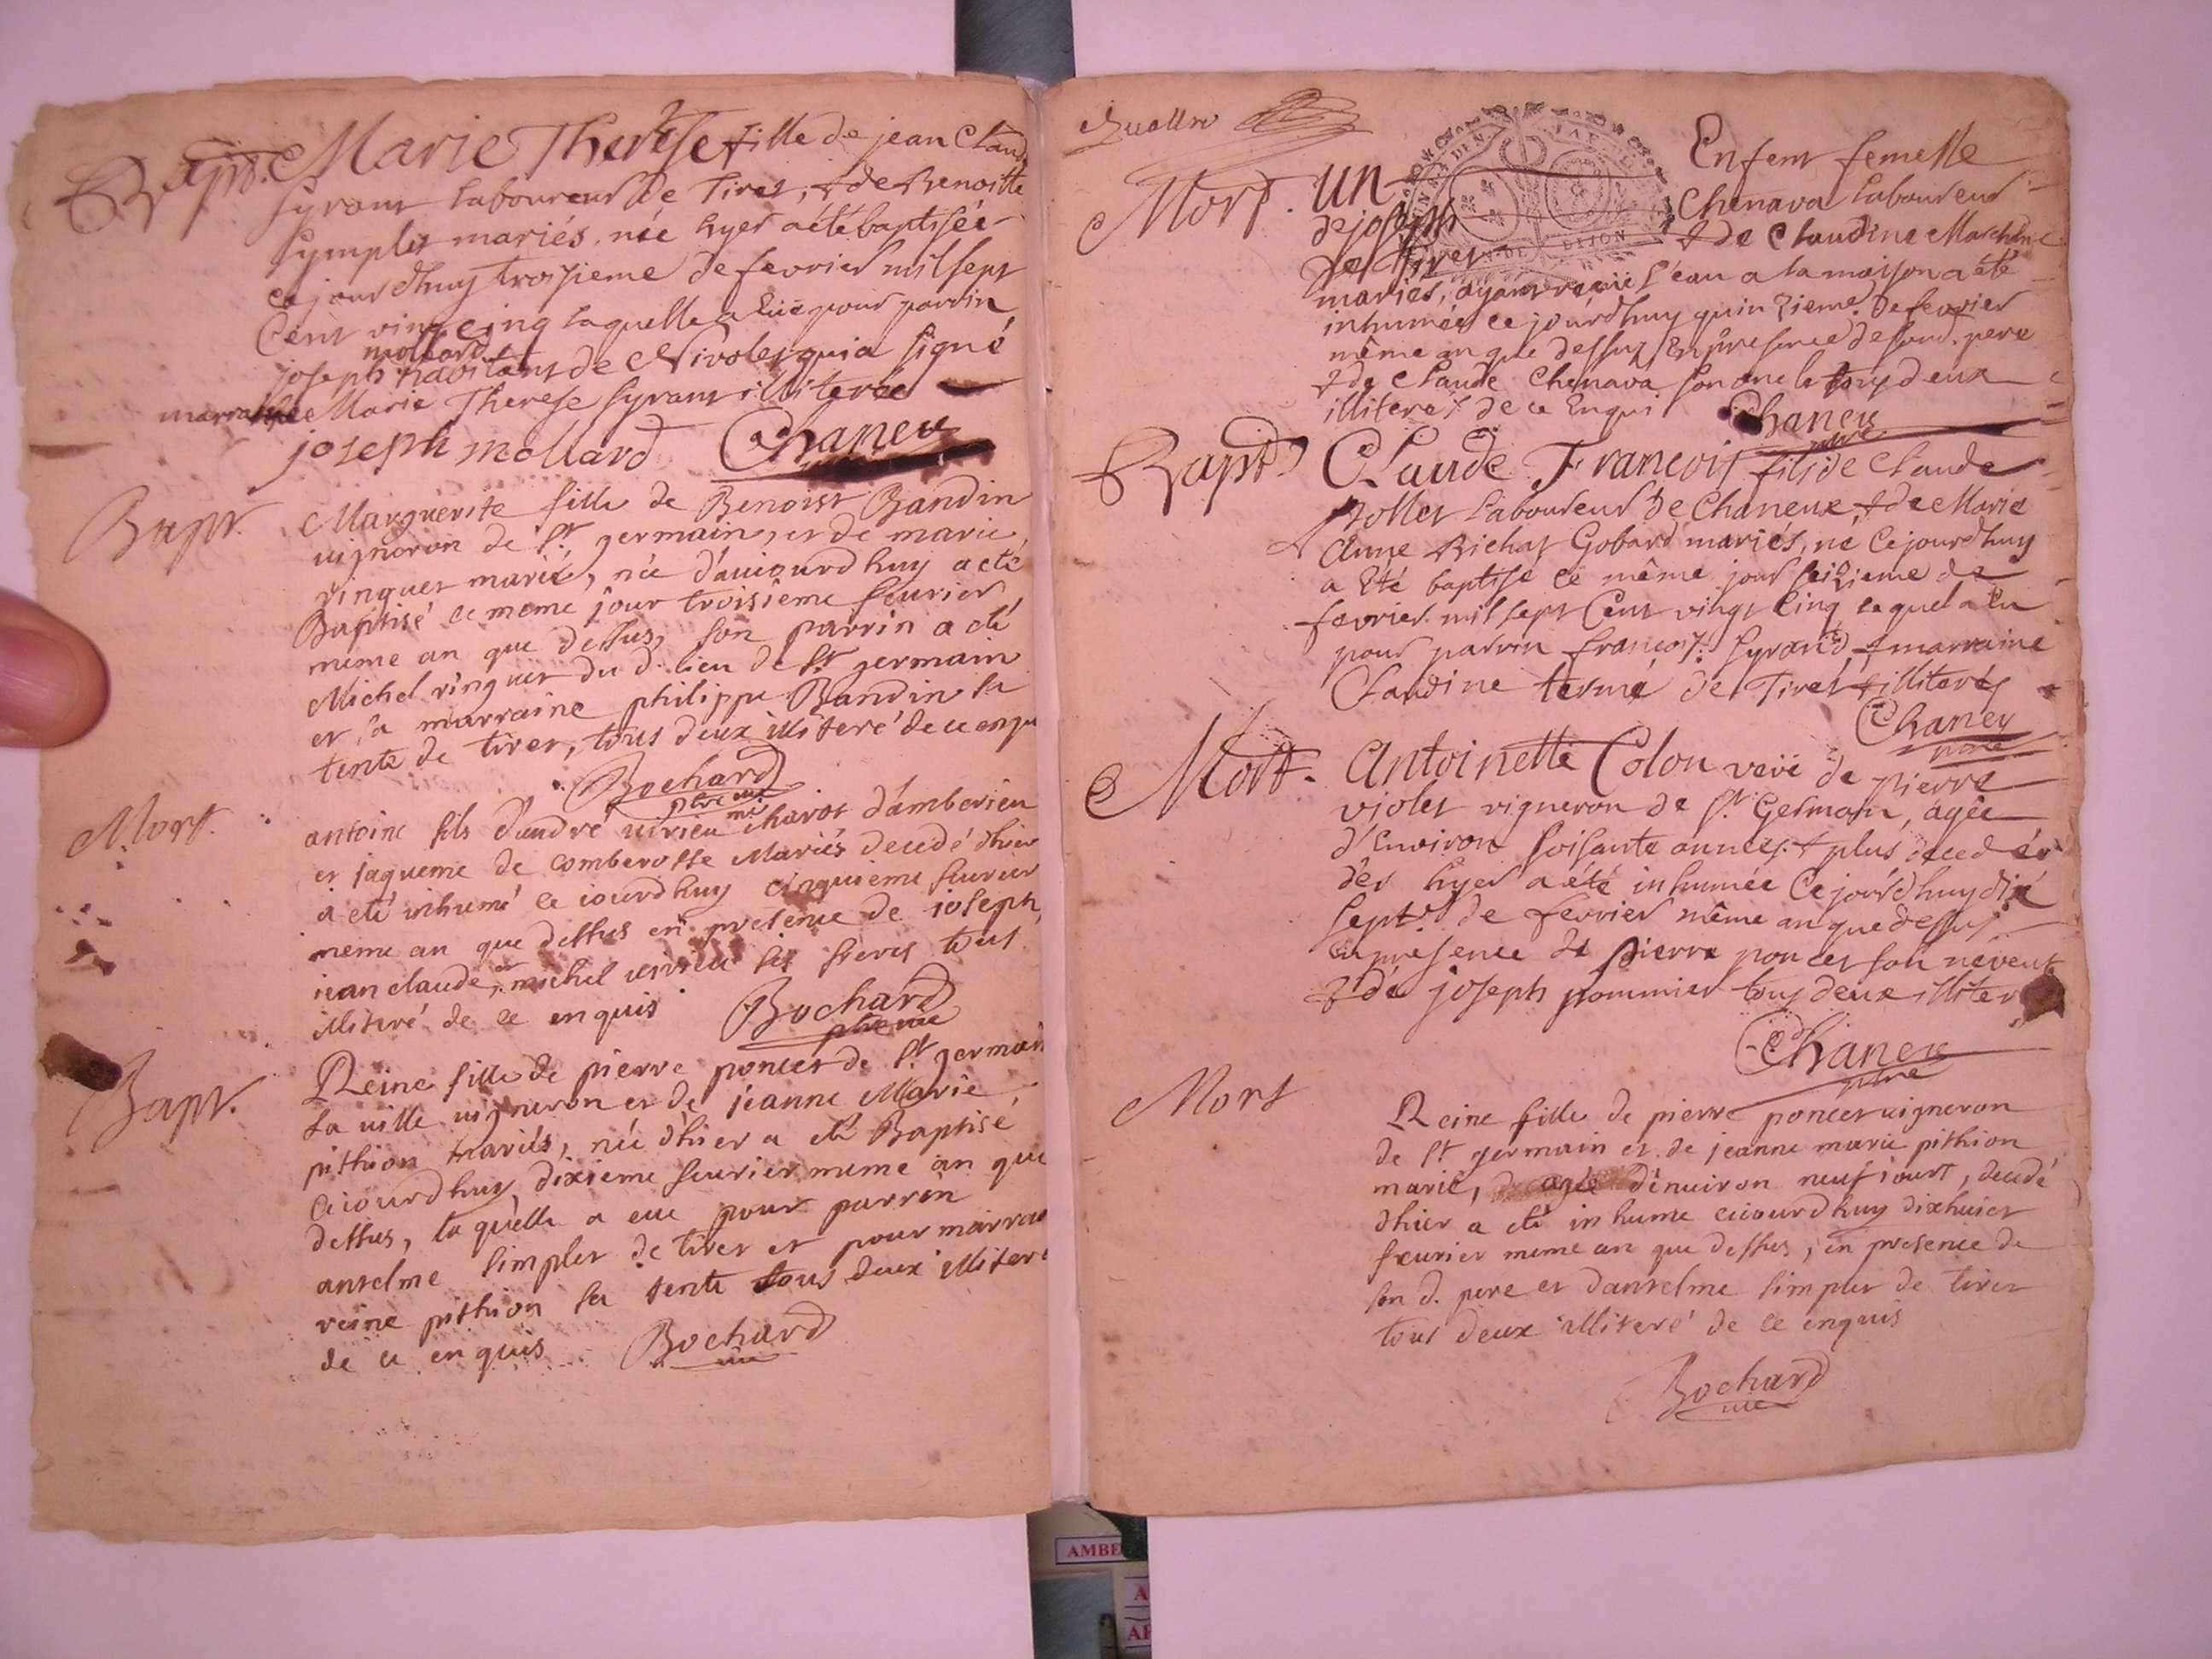 Bapt. Marie Therese fille de jean Claude
Syrant laboureur de Tiret, & de Benoitte
Symplet mariés, née hyer a été baptisée
ce jourdhuy troisieme de fevrier mil sept
Cent vingt cinq laquelle a eüe pour parrin
mollard
joseph habitant de Nivolet qui a signé
marraine Marie Therese Syrant illiterée
joseph mollard Chaneu
Bapt. Marguerite fille de Benoist Bandin
uigneron de St. germain, et de marie
ringuet marié, née d'auiourdhuy a eté
Baptisé ce meme jour troisieme feurier
meme an que dessus, son parrin a eté
Michel ringuet du d. lieu de St germain
et sa marraine philippe Bandin sa
tente de tiret, tous deux illiteré de ce enqu
Bochard
ptre vic
Mort. antoine fils d'andré uirieu charot d'amberieu
et jaqueme de comberosse Mariés decedé dhier
a eté inhumé ce iourdhuy cinquieme feurier
meme an que dessus en presence de ioseph,
iean claude, et michel uirieu ses freres tous
illiteré de ce enquis Bochard
ptre vic
Bapt. Reine fille de pierre poncet de St germain
la uille uigneron et de jeanne Marie
pithion mariés, née d'hier a eté Baptisé
ceiourdhuy dixieme feurier meme an que
dessus, laquelle a eue pour parrin
antelme simplet de tiret et pour marraine
reine pithion sa tente tous deux illiteré
de ce enquis Bochard
vic
Quattre
Mort. un Enfent femelle
de joseph Chenava laboureur
de Tiret & de Claudine Marchand
mariés, ayant reçüe l'eau a la maison a été
inhumée ce jourdhuy quinzieme de fevrier
même an que dessus En presence de son d. pere
& de Claude Chenava son oncle tous deux
illiteres de ce Enqui Chaneu
ptre
Bapt Claude François fils de Claude
Nollet laboureur de Chaneux & de Marie
Anne Richat Gobard mariés, né Cejourdhuy
a Eté baptisé le même jour seizieme de
fevrier mil sept Cent vingt Cinq lequel a Eu
pour parrin françois Syrand, & marraine
Claudine termé de Tiret illiterés
Chaneu
ptre
Mort. Antoinette Colon veüe de pierre
violet vigneron de St. Germain, agée
d'Environ soisante années & plus decedée
dès hyer a été inhumée Ce jourdhuy dix
sept de fevrier même an que dessus
En presence de pierre poncet son neveut
& de joseph pommier tous deux illiter
Chaneu
ptre
Mort Reine fille de pierre poncet uigneron
de St germain et de jeanne marie pithion
marié, agée d'enuiron neuf iours, decedé
dhier a eté inhume ceiourdhuy dixhuict
feurier meme an que dessus, en presence de
son d. pere et dantelme simplet de tiret
tous deux illiteré de ce enquis
Bochard
vic
DIJON
AMBE
A
AR